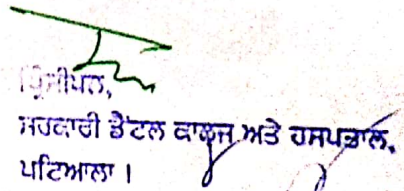 ਪ੍ਰਿੰਸੀਪਲ,
ਸਰਕਾਰੀ ਡੈਂਟਲ ਕਾਲਜ ਅਤੇ ਹਸਪਤਾਲ,
ਪਟਿਆਲਾ ।